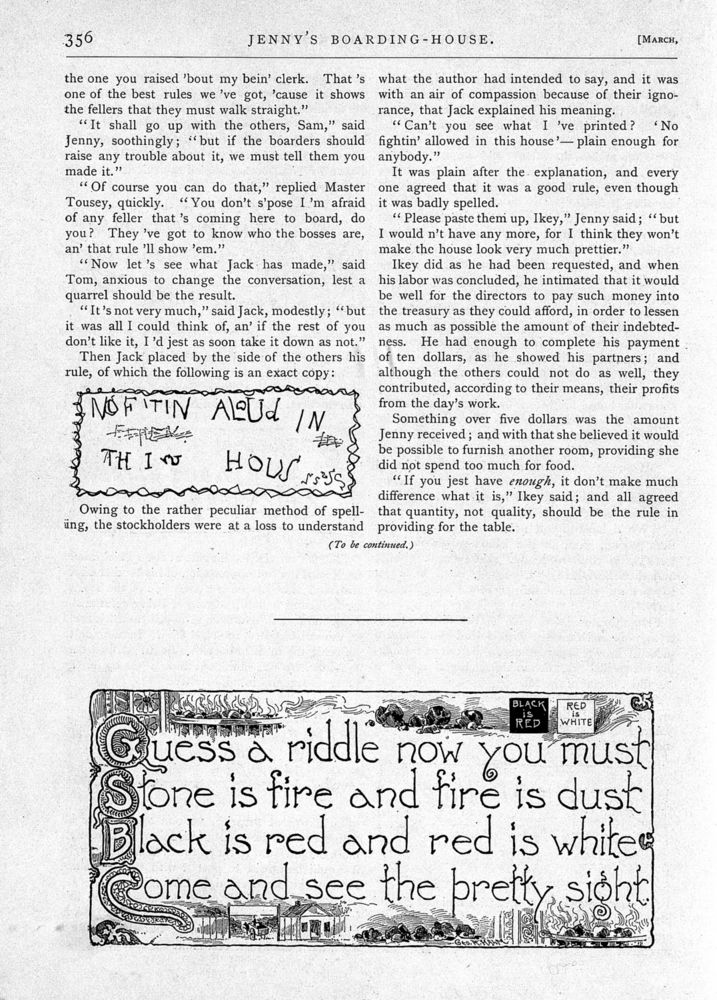 356 JENNY'S BOARDING-HOUSE. [MARCH,
the one you raised 'bout my bein' clerk. That 's
one of the best rules we 've got, 'cause it shows
the fellers that they must walk straight."
"It shall go up with the others, Sam," said
Jenny, soothingly; "but if the boarders should
raise any trouble about it, we must tell them you
made it."
"Of course you can do that," replied Master
Tousey, quickly. "You don't s'pose I 'm afraid
of any feller that 's coming here to board, do
you? They 've got to know who the bosses are,
an' that rule 'll show 'em."
"Now let 's see what Jack has made," said
Tom, anxious to change the conversation, lest a
quarrel should be the result.
"It 's not very much," said Jack, modestly; "but
it was all I could think of, an' if the rest of you
don't like it, I 'd jest as soon take it down as not."
Then Jack placed by the side of the others his
rule, of which the following is an exact copy:
NO FITIN ALOUd IN
THIN HOUS
Owing to the rather peculiar method of spell-
ing, the stockholders were at a loss to understand
what the author had intended to say, and it was
with an air of compassion because of their igno-
rance, that Jack explained his meaning.
"Can't you see what I 've printed? 'No
fightin' allowed in this house'—plain enough for
anybody."
It was plain after the explanation, and every
one agreed that it was a good rule, even though
it was badly spelled.
"Please paste them up, Ikey," Jenny said; "but
I would n't have any more, for I think they won't
make the house look very much prettier."
Ikey did as he had been requested, and when
his labor was concluded, he intimated that it would
be well for the directors to pay such money into
the treasury as they could afford, in order to lessen
as much as possible the amount of their indebted-
ness. He had enough to complete his payment
of ten dollars, as he showed his partners; and
although the others could not do as well, they
contributed, according to their means, their profits
from the day's work.
Something over five dollars was the amount
Jenny received; and with that she believed it would
be possible to furnish another room, providing she
did not spend too much for food.
"If you jest have enough, it don't make much
difference what it is," Ikey said; and all agreed
that quantity, not quality, should be the rule in
providing for the table.
(To be continued.)
BLACK IS RED
RED IS WHITE
Guess a riddle now you must
Stone is fire and fire is dust
Black is red and red is white
Come and see the pretty sight